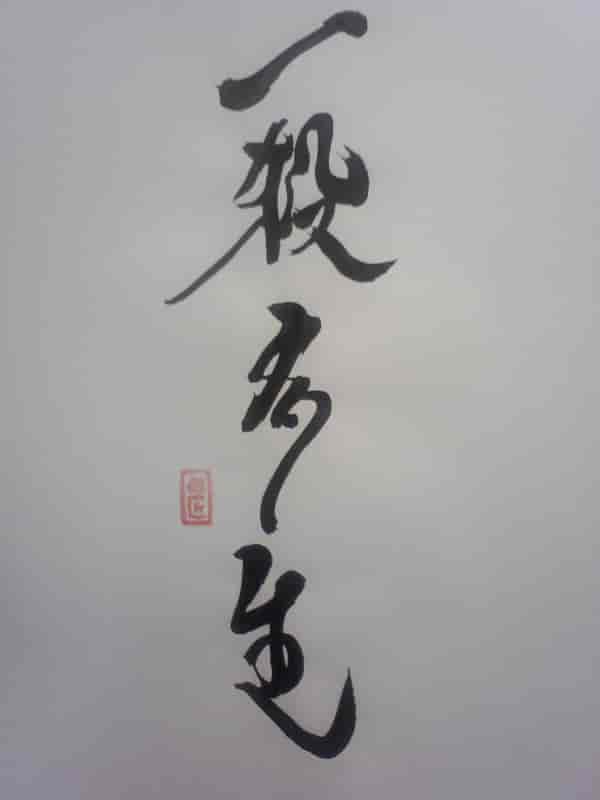 一殺多生